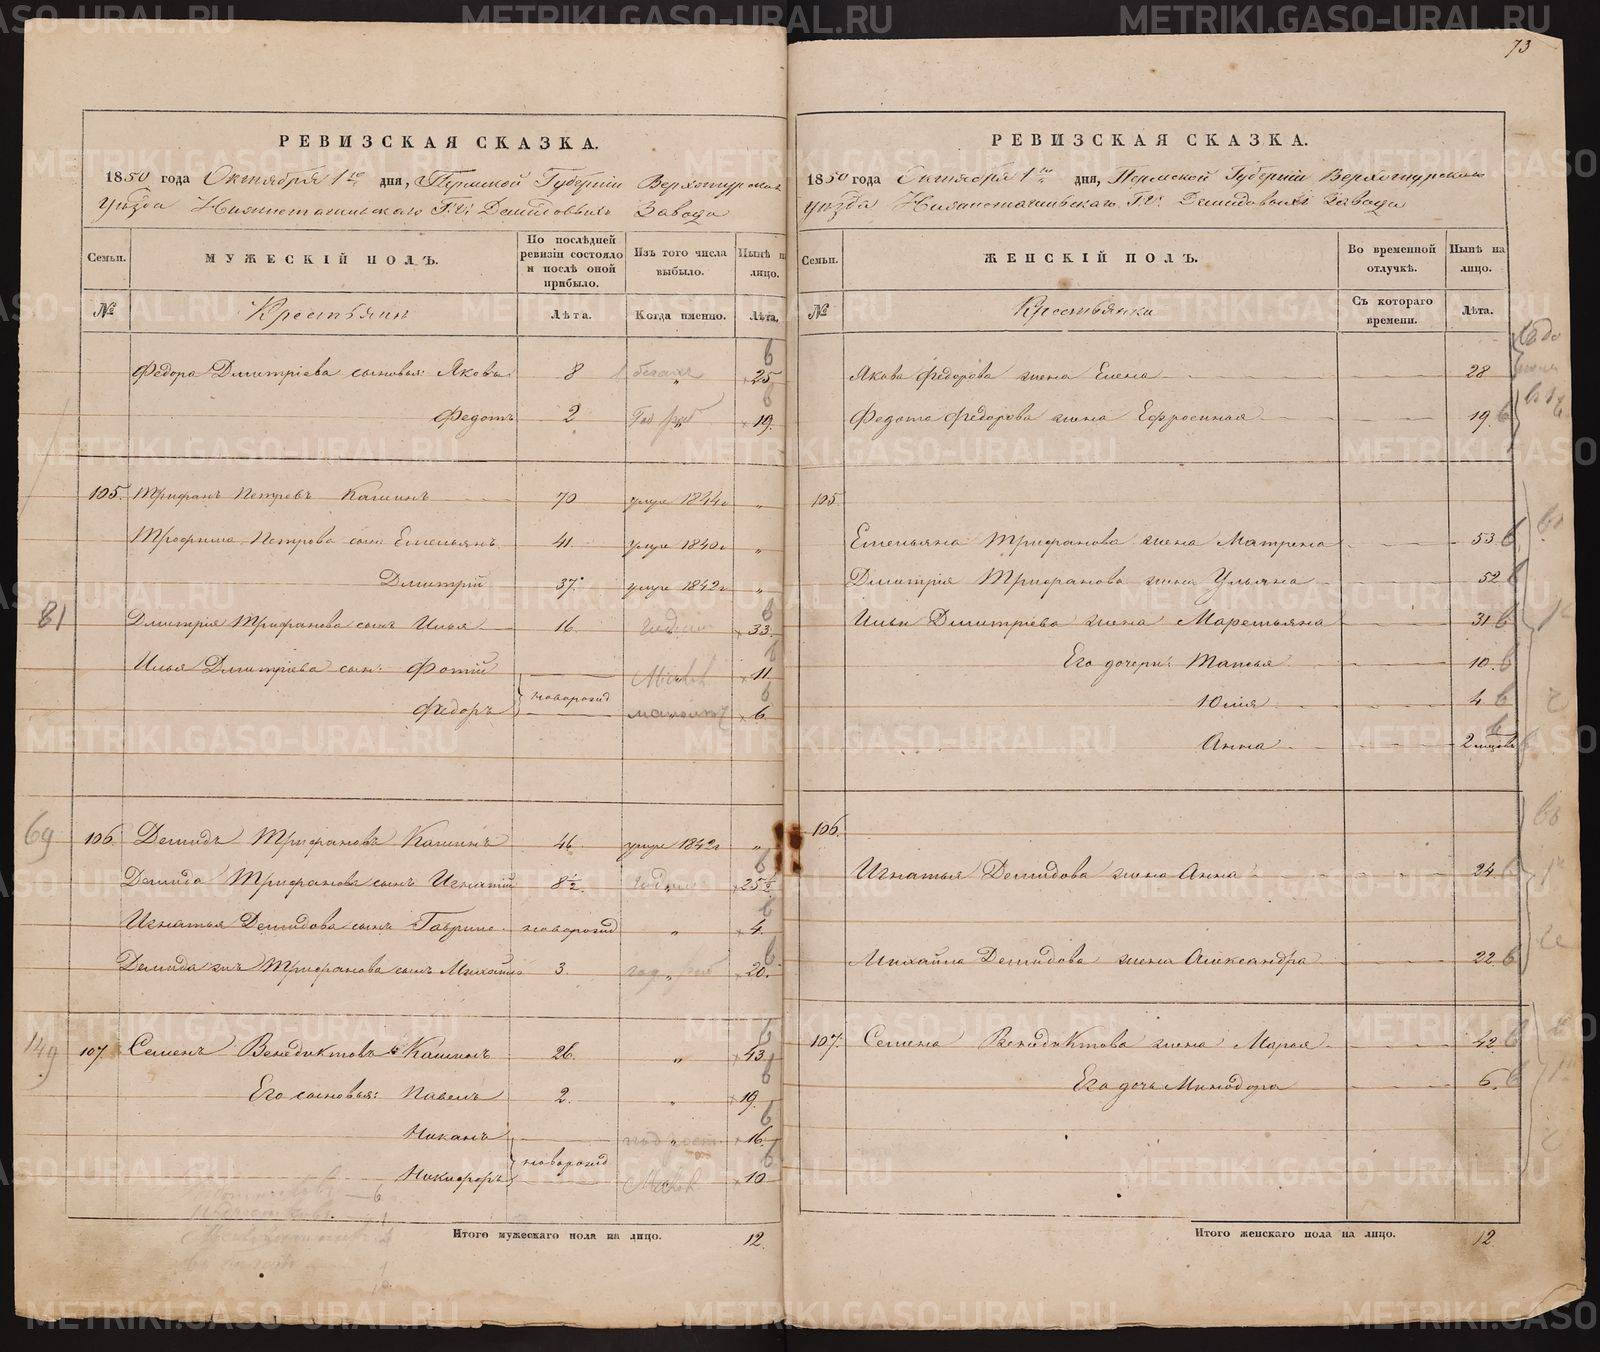 73
РЕВИЗСКАЯ СКАЗКА.
1850 года Октября 1го дня, Пермской Губернiи Верхотурскаго
Уѣзда Нижнетагильскаго Г.г. Демидовыхъ Завода
Семьи.
МУЖЕСКIЙ ПОЛЪ.
По послѣдней ревизiи состояло и послѣ оной прибыло.
Изъ того числа выбыло.
Нынѣ на лицо.
№
Крестьянъ
Лѣта.
Когда именно.
Лѣта.
Федора Дмитрiева сыновья: Яковъ 8 " 25
Федотъ 2 " 19.
105. Трифанъ Петровъ Кашинъ 70 умре 1844г "
Трифана Петрова сын: Емельянъ 41. умре 1840г "
Дмитрiй 37. умре 1842г "
81
Дмитрiя Трифанова сынъ Илья 16. 33.
Ильи Дмитрiева сын: Фотiй 11.
Федоръ новорожд 6.
69
106. Демидъ Трифановъ Кашинъ 46. умре 1842г "
Демида Трифанова сынъ Игнатiй 8½. " 25½
Игнатья Демидова сынъ Гаврило новорожд " 4.
Демида жъ Трифанова сынъ Михайло 3. " 20.
149
107. Семенъ Венедиктовъ Кашинъ 26. " 43.
Его сыновья: Павелъ 2. " 19.
Никанъ " 16.
новорожд
Никифоръ 10
Итого мужескаго пола на лицо. 12.
РЕВИЗСКАЯ СКАЗКА.
1850 года Октября 1го дня, Пермской Губернiи Верхотурскаго
Уѣзда Нижнетагильскаго Г.г. Демидовыхъ Завода
Семьи.
ЖЕНСКIЙ ПОЛЪ.
Во временной отлучкѣ.
Нынѣ на лицо.
№
Крестьянки
Съ котораго времени.
Лѣта.
Якова Федорова жена Елена 28
Федота Федорова жена Ефросинья 19.
105
Емельяна Трифанова жена Матрена 53
Дмитрiя Трифанова жена Ульяна 52
Ильи Дмитрiева жена Маремьяна 31
Его дочери: Таисья 10.
Юлiя 4
Анна 2 мѣсяц
106.
Игнатья Демидова жена Анна 24.
Михайла Демидова жена Александра 22.
107. Семена Венедиктова жена Марья 42.
Его дочь Минодора 6.
Итого женскаго пола на лицо. 12
METRIKI.GASO-URAL.RU